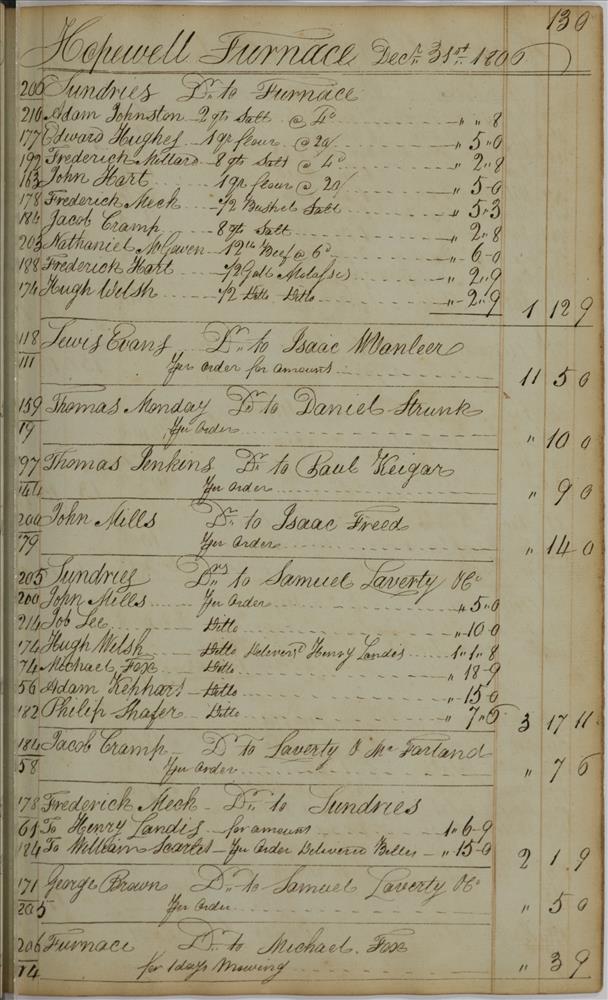 130
Hopewell Furnace Decr. 31st. 1806
206 Sundries Drs. to Furnace
210 Adam Johnston 2 qts Salt @ 4d " " 8
177 Edward Hughes 1 qr flour @ 20/ " 5 " 0
199 Frederick Millard 8 qts Salt @ 4d " 2 " 8
163 John Hart 1 qr flour @ 20/ " 5 " 0
178 Frederick Meck 1/2 Bushel Salt " 5 " 3
184 Jacob Cramp 8 qts Salt " 2 " 8
203 Nathaniel McGowen 12 lb Beef @ 6d " 6 " 0
188 Frederick Hart 1/2 Gall Molasses " 2 " 9
174 Hugh Welsh 1/2 Ditto Ditto " 2 " 9 1 12 9
118 Lewis Evans Dr. to Isaac WVanleer
111 Per order for amount 11 5 0
159 Thomas Monday Dr. to Daniel Strunk
19 Per Order " 10 0
97 Thomas Jenkins Dr. to Paul Keigar
144 Per Order " 9 0
200 John Mills Dr. to Isaac Freed
79 Per Order " 14 0
205 Sundries Drs. to Samuel Laverty & Co
200 John Mills Per Order " 5 " 0
214 Job Lee Ditto " 10 " 0
74 Hugh Welsh Ditto Deliverd. Henry Landis 1 " 1 " 8
74 Michael Fox Ditto " 18 " 9
56 Adam Kephart Ditto " 15 " 0
182 Philip Shafer Ditto " 7 " 6 3 17 11
184 Jacob Cramp Dr. To Laverty & McFarland
58 Per Order " 7 6
178 Frederick Meck Dr. to Sundries
61 To Henry Landis for amount 1 " 6 " 9
124 To William Scarlet Per Order Delivered Billes " 15 " 0 2 1 9
171 George Brown Dr. to Samuel Laverty & Co
205 Per Order " 5 0
206 Furnace Dr. to Michael Fox
74 for 1 days Mowing " 3 9